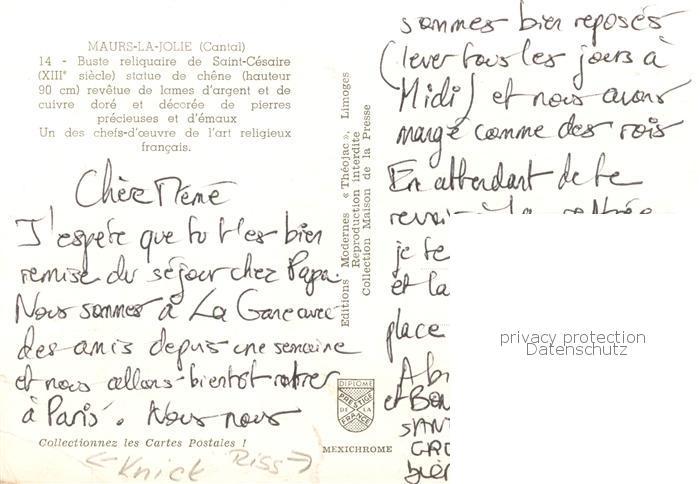 MAURS-LA-JOLIE (Cantal)
14 - Buste reliquaire de Saint-Césaire
(XIIIᵉ siècle) statue de chêne (hauteur
90 cm) revêtue de lames d'argent et de
cuivre doré et décorée de pierres
précieuses et d'émaux
Un des chefs-d'œuvre de l'art religieux
français.
Chère Mémé
J'espère que tu t'es bien
remise du séjour chez Papa.
Nous sommes à La Gane avec
des amis depuis une semaine
et nous allons bientôt rentrer
à Paris. Nous nous
Collectionnez les Cartes Postales !
← Knick Riss →
Editions Modernes « Théojac », Limoges
Reproduction interdite
Collection Maison de la Presse
DIPLOME
PRESTIGE
DE LA
FRANCE
MEXICHROME
sommes bien reposés
(lever tous les jours à
Midi) et nous avons
mangé comme des rois
En attendant de te
revoir à la rentrée
je te
et la
place
et BON
SAN
GRO
privacy protection
Datenschutz